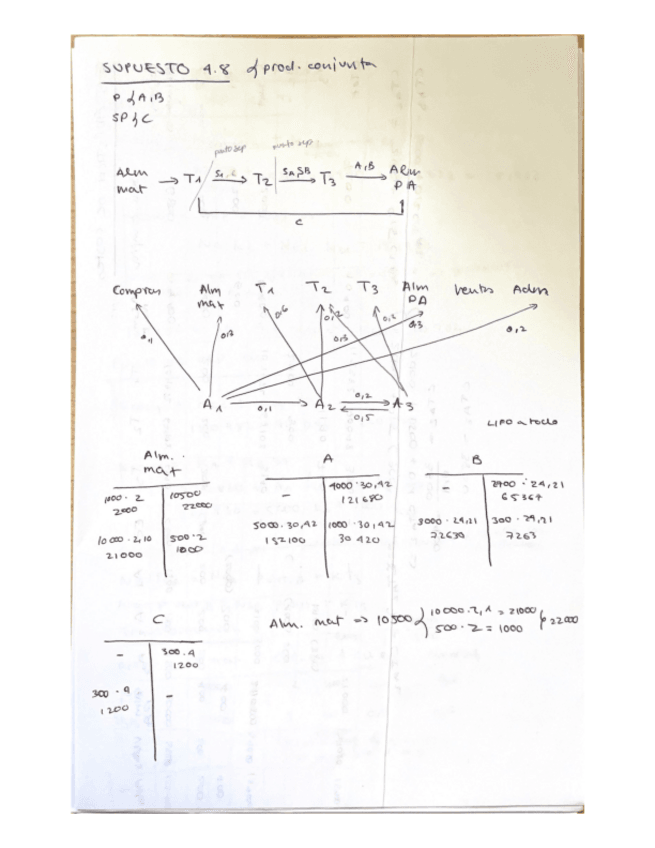 SUPUESTO 4.8 { prod. conjunta
P { A, B
SP { C
punto sep
punto sep
Alm mat → T1 → T2 SA, SB → T3 A, B → Alm PA
C
Compras Alm mat T1 T2 T3 Alm PA Ventas Adm
0,6 0,2 0,2 0,3
0,1 0,2 0,3 0,2
A1 0,1 A2 0,2 A3
0,5
LIFO a todo
Alm. mat
1000 · 2 10500
2000 22000
10000 · 2,10 500 · 2
21000 1000
A
- 4000 · 30,42
121680
5000 · 30,42 1000 · 30,42
152100 30420
B
- 2700 · 24,21
65367
3000 · 24,21 300 · 24,21
72630 7263
C
- 300 · 4
1200
300 · 4 -
1200
Alm. mat => 10500 { 10000 · 2,1 = 21000
500 · 2 = 1000 } 22000